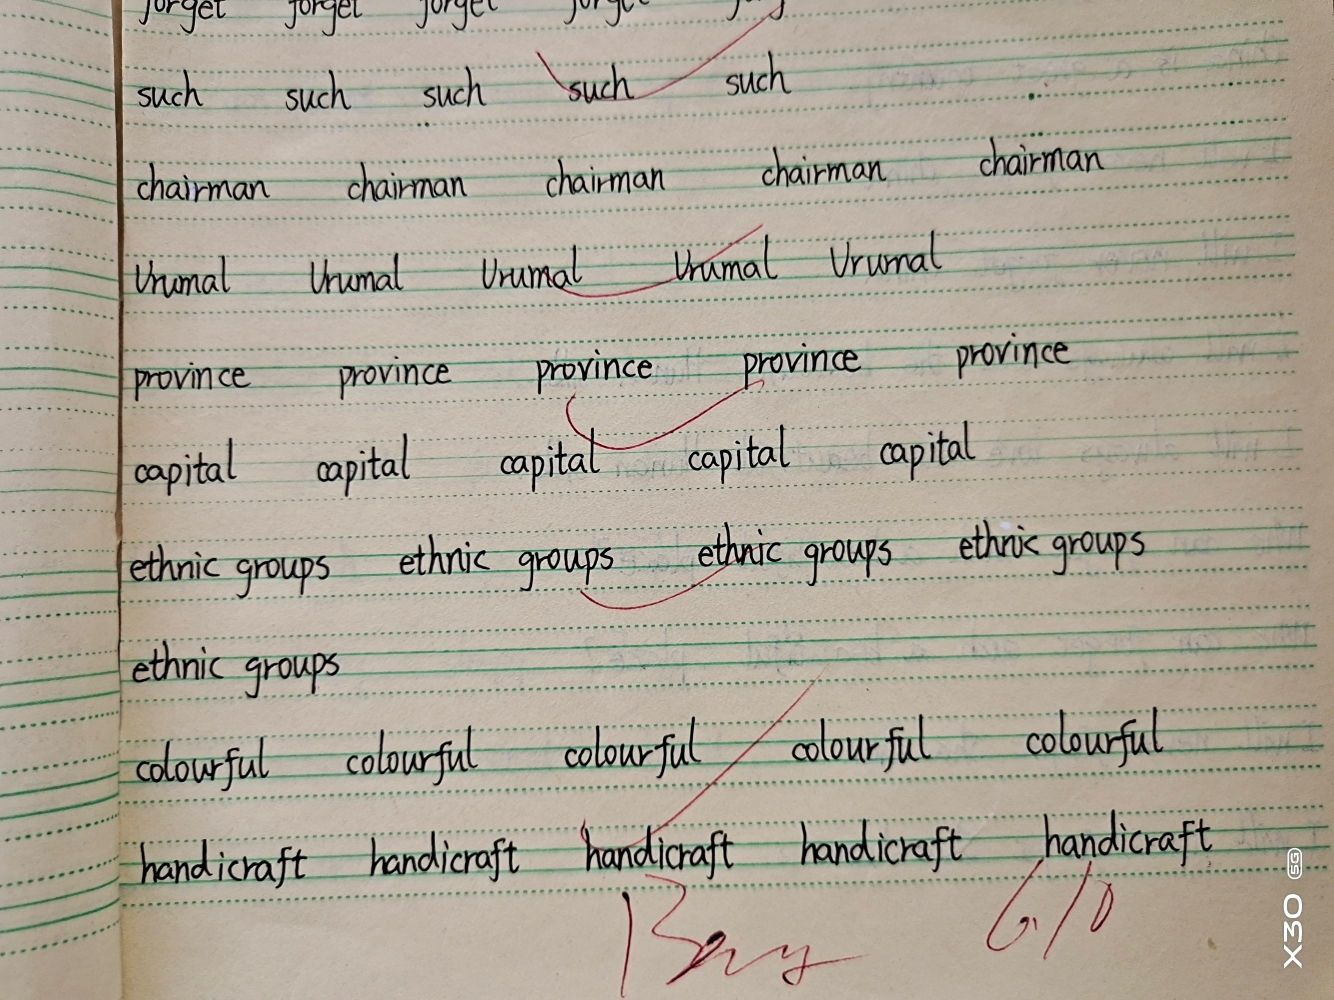 forget forget forget forget
such such such such such
chairman chairman chairman chairman chairman
Urumal Urumal Urumal Urumal Urumal
province province province province province
capital capital capital capital capital
ethnic groups ethnic groups ethnic groups ethnic groups
ethnic groups
colourful colourful colourful colourful colourful
handicraft handicraft handicraft handicraft handicraft
6/10
X30 5G